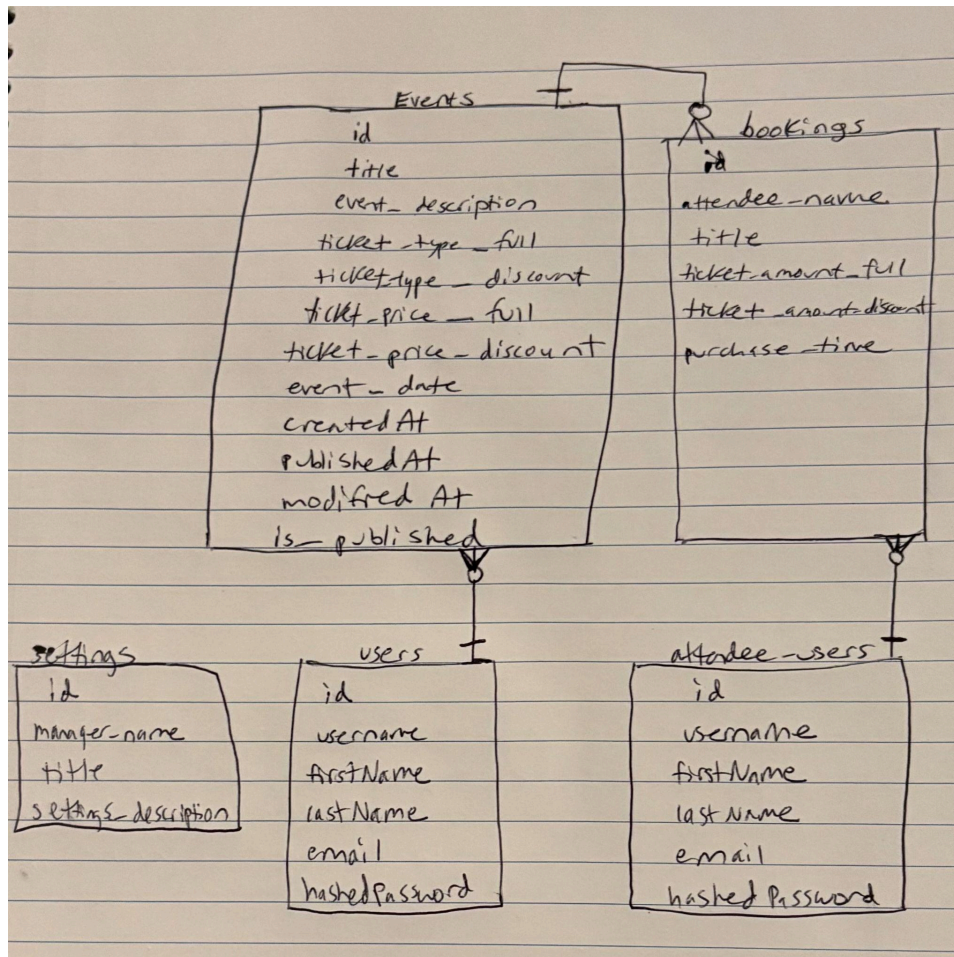 Events
id
title
event_description
ticket_type_full
ticket_type_discount
ticket_price_full
ticket_price_discount
event_date
createdAt
publishedAt
modifiedAt
is_published
bookings
id
attendee_name
title
ticket_amount_full
ticket_amount_discount
purchase_time
settings
id
manager_name
title
settings_description
users
id
username
firstName
lastName
email
hashedPassword
attendee_users
id
username
firstName
lastName
email
hashedPassword